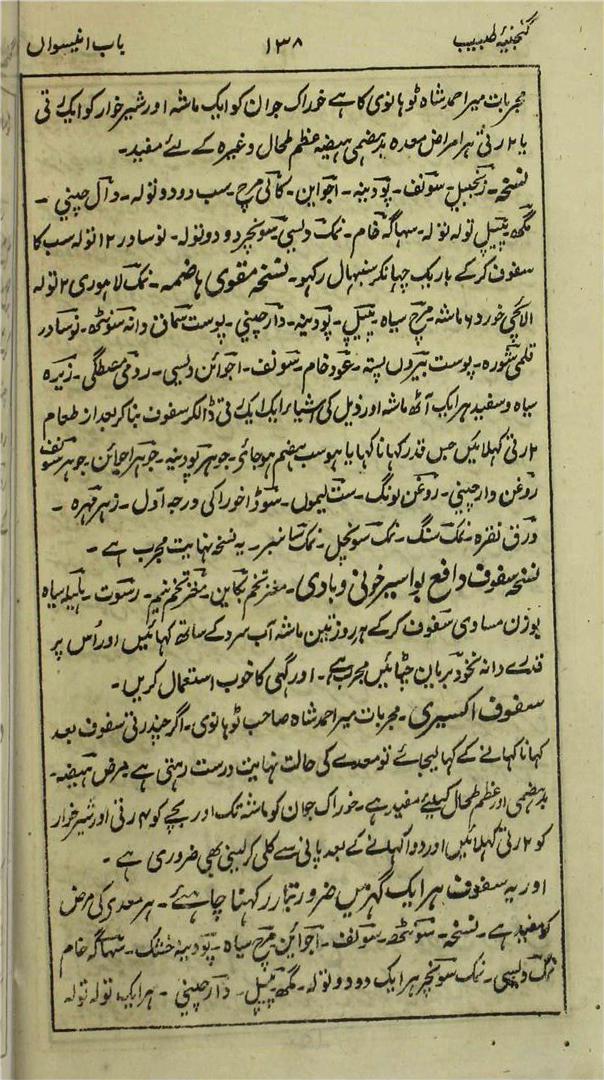 گنجینۂ طبیب ۱۳۸ باب انیسواں
مجربات میر احمد شاہ ٹوہانوی کا ہے خوراک جوان کو ایک ماشہ اور شیر خوار کو ایک رتی
یا ۲ رتی ہر امراض معدہ بدہضمی ہیضہ عظم طحال وغیرہ کے لئے مفید۔
نسخہ۔ زنجبیل۔ سونف۔ پودینہ۔ اجواین۔ کالی مرچ۔ سب دو دو تولہ۔ دال چینی۔
مگھ پیپل تولہ تولہ۔ سہاگہ خام۔ نمک دیسی۔ سونچر دو دو تولہ۔ نوسادر ۱۲ تولہ سب کا
سفوف کر کے باریک چھانکر سنبھال رکھو۔ نسخہ مقوی ہاضمہ۔ نمک لاہوری ۲ تولہ
الائچی خورد ۶ ماشہ۔ مرچ سیاہ۔ پیپل۔ پودینہ۔ دارچینی۔ پوست سماق دانہ سونٹھ۔ نوسادر
قلمی شورہ۔ پوست بیروں پستہ۔ عود خام۔ سونف۔ اجوائن دیسی۔ رومی مصطگی۔ زیرہ
سیاہ و سفید ہر ایک آٹھ ماشہ اور ذیل کی اشیاء ایک ایک رتی ڈالکر سفوف بنا کر بعد از طعام
۲ رتی کہلائیں جس قدر کہانا کہایا ہو سب ہضم ہو جائے۔ جوہر پودینہ۔ جوہر اجوائن۔ جوہر سونف
روغن دارچینی۔ روغن لونگ۔ ست لیموں۔ سوڈا خوراکی درجہ اول۔ زہر مہرہ۔
ورق نقرہ۔ نمک سنگ۔ نمک سونچل۔ نمک سانبر۔ یہ نسخہ نہایت مجرب ہے۔
نسخہ سفوف دافع بواسیر خونی و بادی۔ مغز تخم بکاین۔ مغز تخم نیم۔ رسوت۔ ہلیلہ سیاہ
بوزن مساوی سفوف کر کے ہر روز تین ماشہ آب سرد کے ساتھ کہائیں اور اس پر
قدرے دانہ نخود بریان چبائیں مجرب ہے۔ اور گہی کا خوب استعمال کریں۔
سفوف اکسیری۔ مجربات میر احمد شاہ صاحب ٹوہانوی۔ اگر چند رتی سفوف بعد
کہانا کہانے کے کہا لیجائے تو معدے کی حالت نہایت درست رہتی ہے مرض ہیضہ۔
بدہضمی اور عظم طحال کیلئے مفید ہے۔ خوراک جوان کو ماشہ تک اور بچے کو ۴ رتی اور شیر خوار
کو ۲ رتی کہلائیں اور دوا کہلانے کے بعد پانی سے کلی کر لینی بھی ضروری ہے۔
اور یہ سفوف ہر ایک گہر میں ضرور تیار رکہنا چاہئے۔ ہر معدی کی مرض
کو مفید ہے۔ نسخہ۔ سونٹھ۔ سونف۔ اجوائین مرچ سیاہ۔ پودینہ خشک۔ سہاگہ خام
نمک دیسی۔ نمک سونچر ہر ایک دو دو تولہ۔ مگھ پیپل۔ دارچینی۔ ہر ایک تولہ تولہ